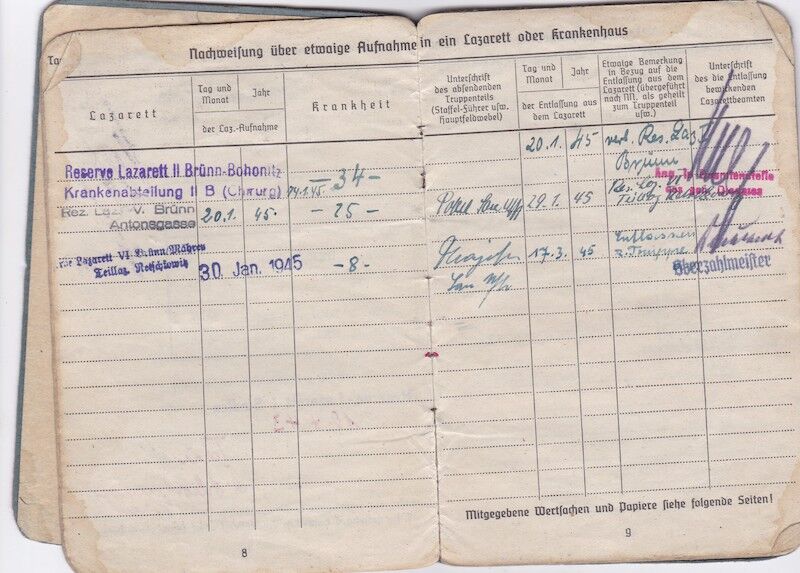 Nachweisung über etwaige Aufnahme in ein Lazarett oder Krankenhaus
Lazarett
Tag und Monat
Jahr
der Laz.-Aufnahme
Krankheit
Unterschrift
des absendenden
Truppenteils
(Staffel-Führer usw.
Hauptfeldwebel)
Tag und
Monat
Jahr
der Entlassung aus
dem Lazarett
Etwaige Bemerkung
in Bezug auf die
Entlassung aus dem
Lazarett (übergeführt
nach NN. als geheilt
zum Truppenteil
usw.)
Unterschrift
des die Entlassung
bewirkenden
Lazarettbeamten
Reserve Lazarett II Brünn-Bohonitz
Krankenabteilung II B (Chirurg)
14.1.45.
-34-
20.1. 45
verl. Res. Laz.
Brünn
Rez. Laz. V. Brünn
Antonsgasse
20.1. 45.
-25-
29.1. 45
Res. Laz.
Lazarett VI Brünn/Mähren
Teillaz.
30. Jan. 1945
-8-
17.3. 45
Entlassen
z. Truppe
Oberzahlmeister
Mitgegebene Wertsachen und Papiere siehe folgende Seiten!
8
9